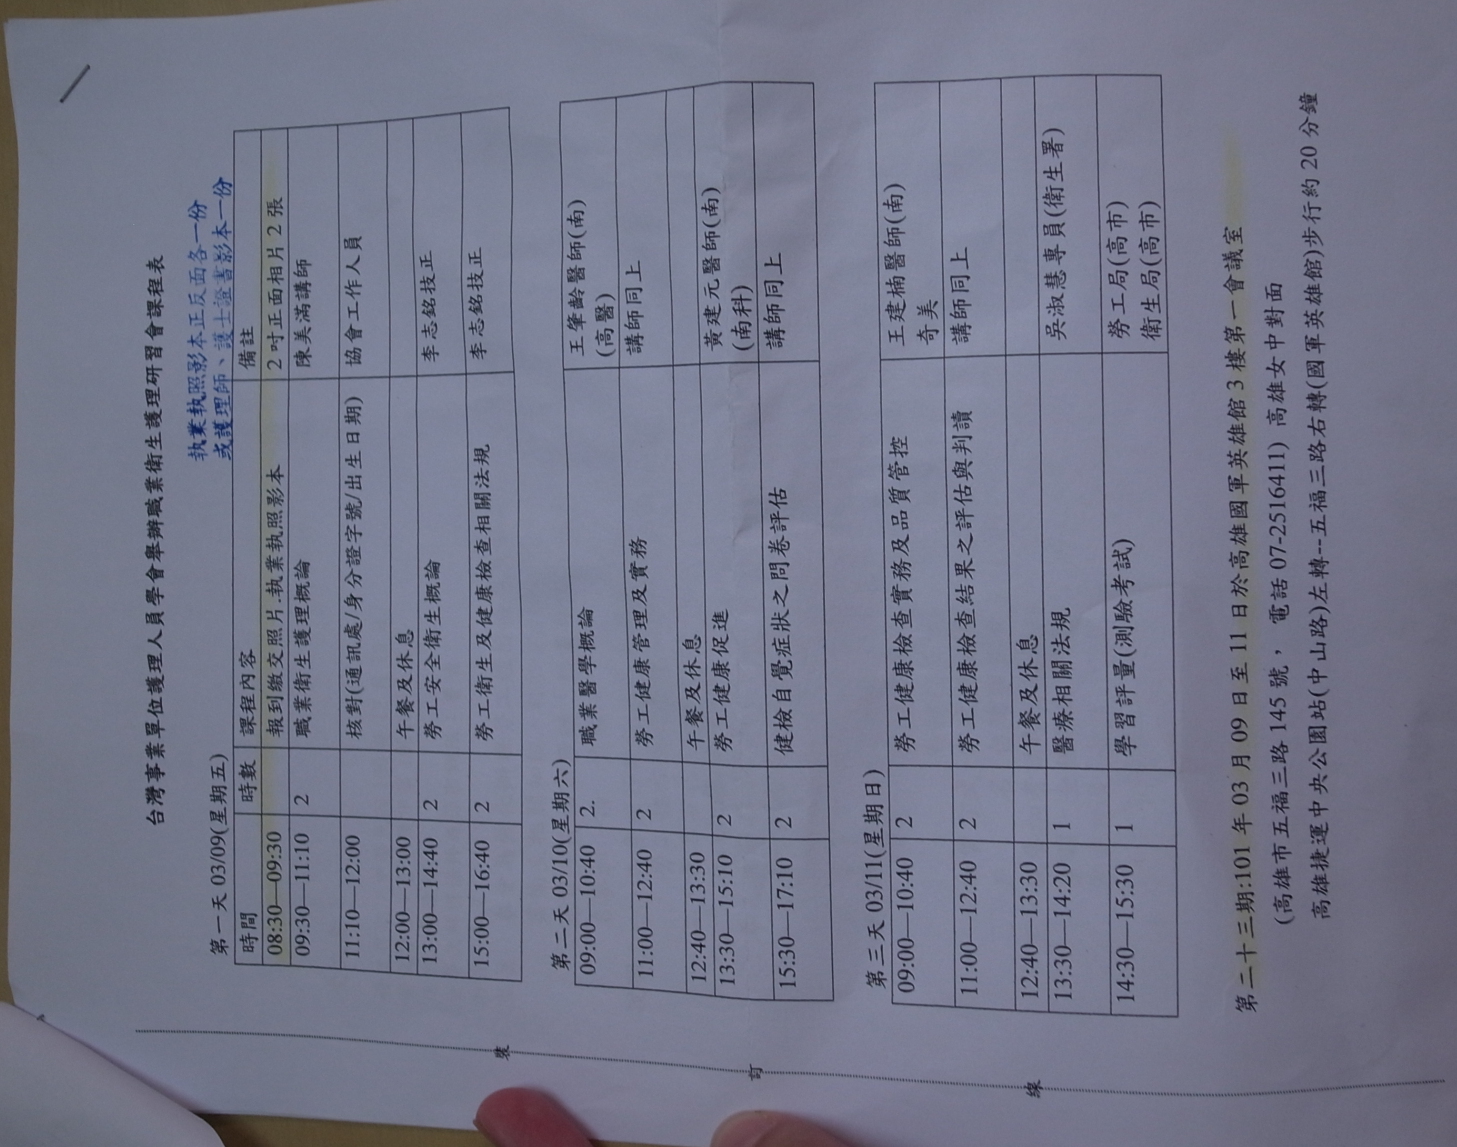 台灣事業單位護理人員學會舉辦職業衛生護理研習會課程表
執業執照影本正反面各一份
或護理師、護士證書影本一份
第一天 03/09(星期五)
時間 時數 課程內容 備註
08:30—09:30 報到繳交照片.執業執照影本 2吋正面相片2張
09:30—11:10 2 職業衛生護理概論 陳美滿講師
11:10—12:00 核對(通訊處/身分證字號/出生日期) 協會工作人員
12:00—13:00 午餐及休息
13:00—14:40 2 勞工安全衛生概論 李志銘技正
15:00—16:40 2 勞工衛生及健康檢查相關法規 李志銘技正
第二天 03/10(星期六)
09:00—10:40 2. 職業醫學概論 王肇齡醫師(南)
(高醫)
11:00—12:40 2 勞工健康管理及實務 講師同上
12:40—13:30 午餐及休息
13:30—15:10 2 勞工健康促進 黃建元醫師(南)
(南科)
15:30—17:10 2 健檢自覺症狀之問卷評估 講師同上
第三天 03/11(星期日)
09:00—10:40 2 勞工健康檢查實務及品質管控 王建楠醫師(南)
奇美
11:00—12:40 2 勞工健康檢查結果之評估與判讀 講師同上
12:40—13:30 午餐及休息
13:30—14:20 1 醫療相關法規 吳淑慧專員(衛生署)
14:30—15:30 1 學習評量(測驗考試) 勞工局(高市)
衛生局(高市)
第二十三期:101 年 03 月 09 日至 11 日於高雄國軍英雄館 3 樓第一會議室
(高雄市五福三路 145 號, 電話 07-2516411) 高雄女中對面
高雄捷運中央公園站(中山路)左轉--五福三路右轉(國軍英雄館)步行約 20 分鐘
裝
訂
線